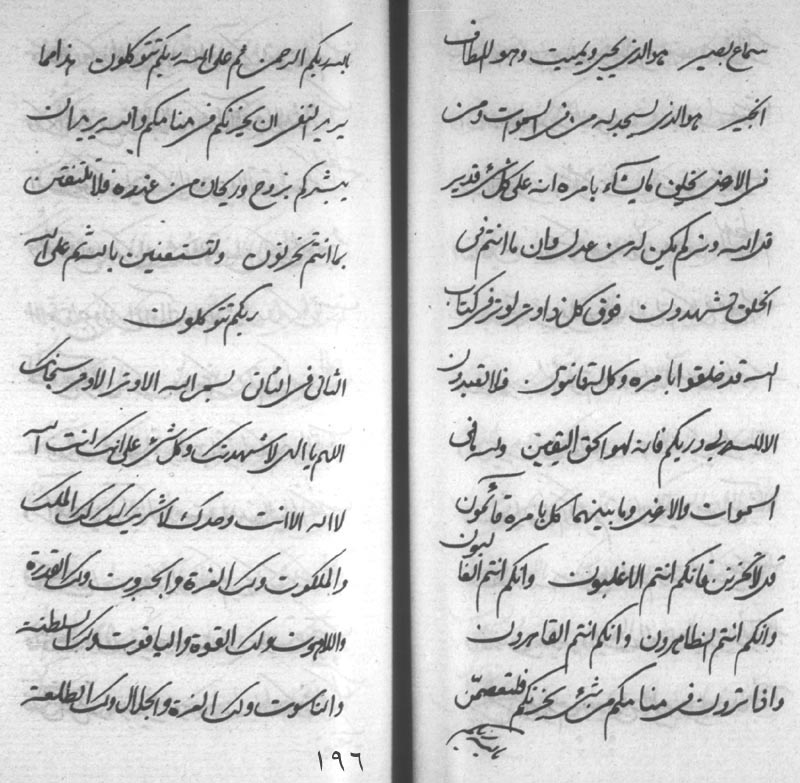 سماع بصير هو الذي يحيي ويميت وهو اللطاف
الخبير هو الذي يسجد له من في السموات ومن
في الارض يخلق ما يشاء بامره انه على كل شيء قدير
قد الله وربكم يكن له من عدل وان ما انتم في
الخلق تشهدون فوق كل ذا وتر لوتر في كتاب
الله قد خلقوا بامره وكل له قانتون فلا تعبدون
الا الله ربي وربكم فانه لهو الحق اليقين ولله ما في
السموات والارض وما بينهما كل بامره قائمون
قد لا تحزنن فانكم انتم الاغلبون وانكم انتم الغالبون
وانكم انتم الظاهرون وانكم انتم القاهرون
واذا ترون في منامكم من شيء يحزنكم فلتعصمن
بالله ربكم الرحمن ثم على الله ربكم تتوكلون هذا مما
يريد النفس ان يحزنكم في منامكم والله يريد ان
يبشركم بروح وريحان من عنده فلا تلتفتن
بما انتم تحزنون ولتستعينن بالله ثم على الله
ربكم تتوكلون
الثاني في الثاني بسم الله الاوتر الاوتر سبحانك
اللهم يا الهي لاشهدنك وكل شيء على انك انت الله
لا اله الا انت وحدك لا شريك لك لك الملك
والملكوت ولك العزة والجبروت ولك القدرة
واللاهوت ولك القوة والياقوت ولك السلطنة
والناسوت ولك العزة والجلال ولك الطلعة
١٩٦